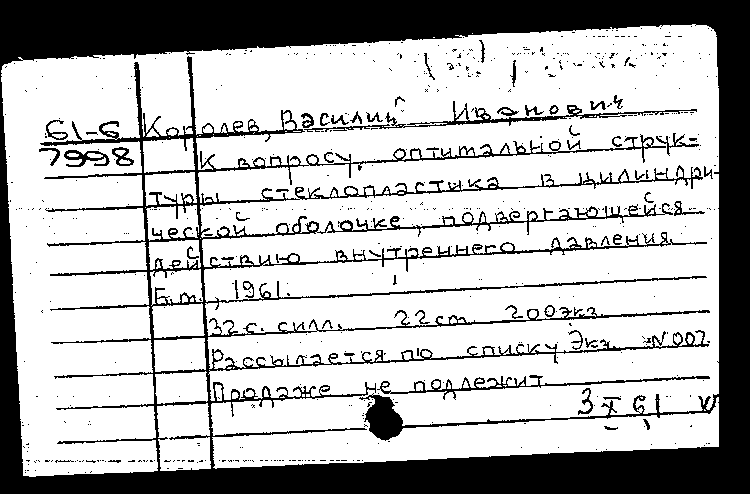 61-6 Королев, Василий Иванович
7998 К вопросу оптимальной струк=
туры стеклопластика в цилиндри-
ческой оболочке, подвергающейся
действию внутреннего давления.
Б.м., 1961.
32 с. с илл. 22 см 200 экз.
Рассылается по списку. Экз. №002.
Продаже не подлежит.
3 X 61